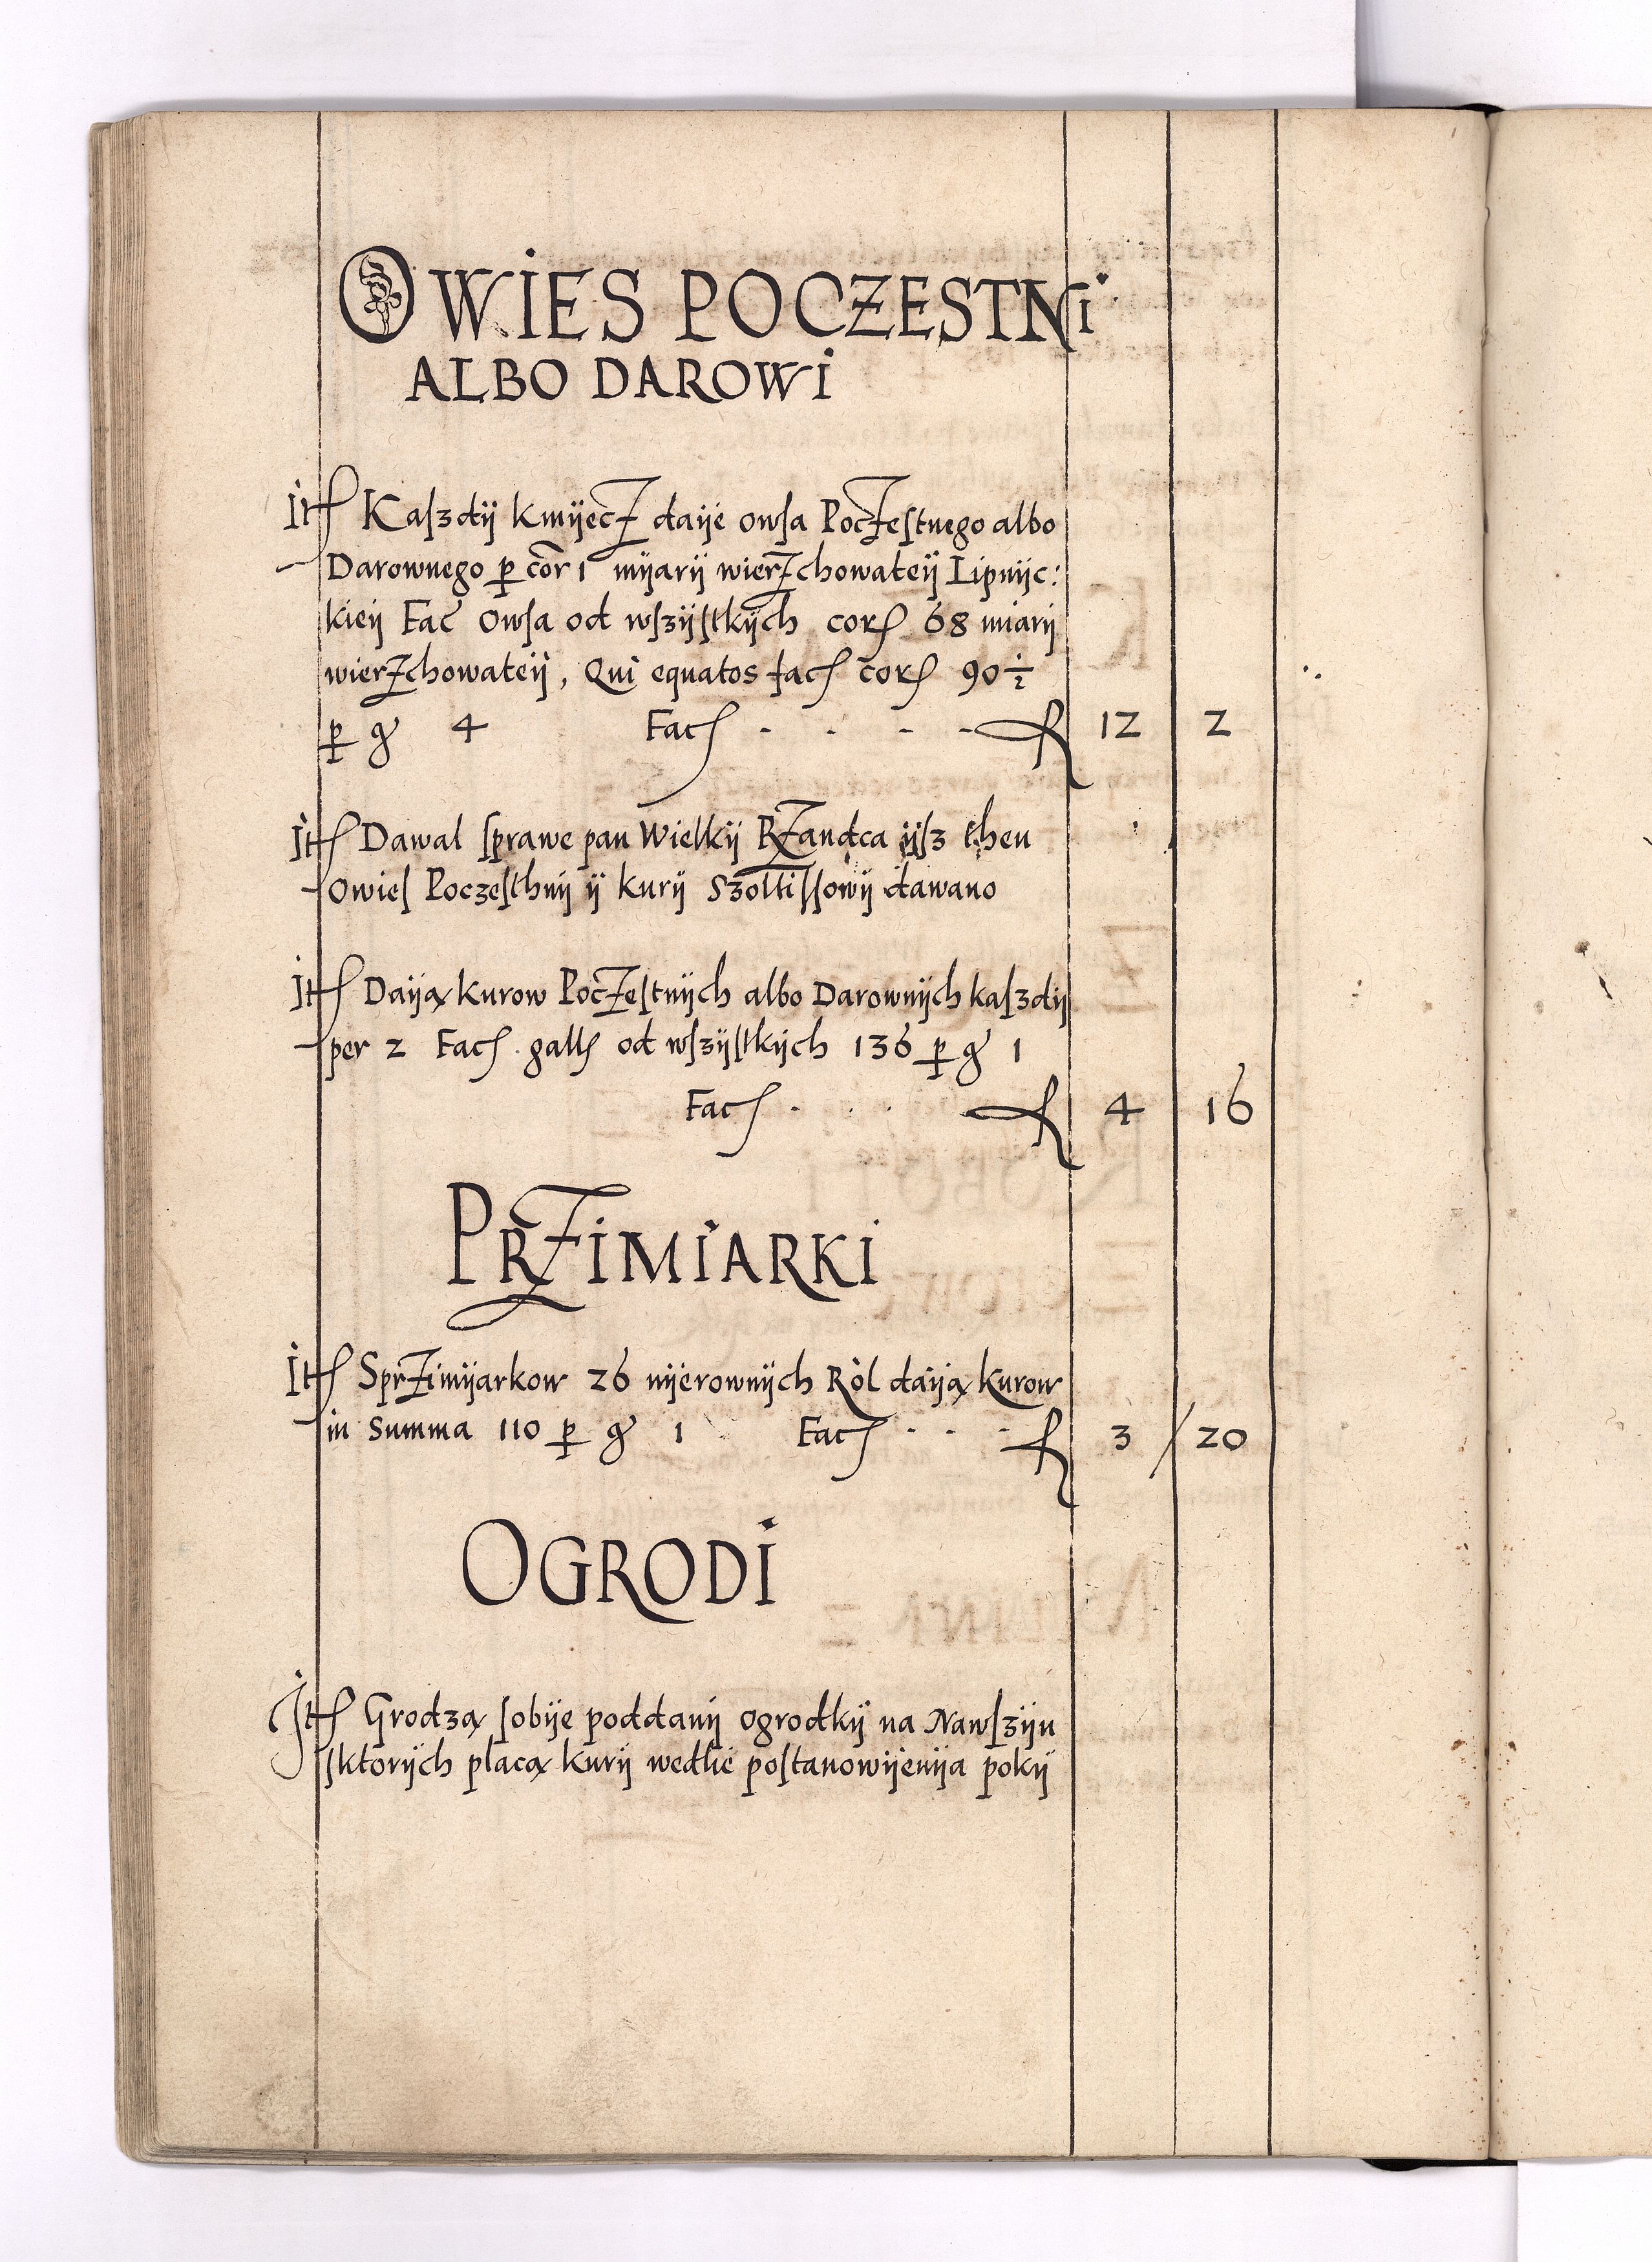 OWIES POCZESTNi
ALBO DAROWi
Itꝭ Kaſzdÿ kmÿecz daÿe owſa Poczeſtnego albo
Darownego ꝑ cor 1 mÿarÿ wierzchowateÿ Lipnÿc:
kieÿ Fac Owſa od wſzÿſtkÿch corꝭ 68 miarÿ
wierzchowateÿ, Qui equatos facꝭ corꝭ 90 ½
ꝑ gͬ 4 Facꝭ - - - - fl 12 2
Itꝭ Dawal ſprawe pan Wielkÿ Rzandca ÿſz then
Owieſ Poczeſthnÿ ÿ kurÿ Szoltiſſowÿ dawano
Itꝭ Daÿą kurow Poczeſtnÿch albo Darownÿch kaſzdÿ
per 2 Facꝭ gallꝭ od wſzÿſtkich 136 ꝑ gͬ 1
Facꝭ . . . fl 4 16
PRZiMiARKi
Itꝭ Sprzimÿarkow 26 nÿerownÿch Ról daÿą kurow
in Summa 110 ꝑ gͬ 1 Facꝭ - - - fl 3 / 20
OGRODi
Itꝭ Grodzą ſobÿe poddanÿ ogrodkÿ na Nawſzÿu
ſktorÿch placą kurÿ wedlie poſtanowÿenÿa pokÿ